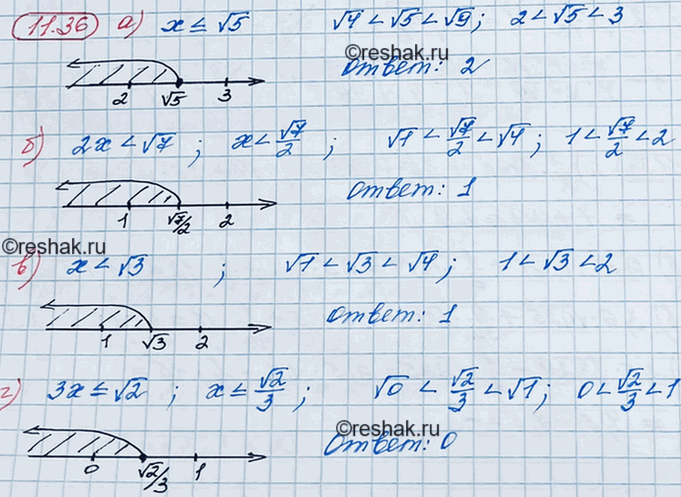 11.36 а) x ≤ √5 √4 < √5 < √9; 2 < √5 < 3
©reshak.ru
2 √5 3 ответ: 2
б) 2x < √7 ; x < √7/2 ; √1 < √7/2 < √4; 1 < √7/2 < 2
1 √7/2 2 ответ: 1
©reshak.ru
в) x < √3 ; √1 < √3 < √4; 1 < √3 < 2
1 √3 2 ответ: 1
г) 3x ≤ √2 ; x ≤ √2/3 ; √0 < √2/3 < √1; 0 < √2/3 < 1
©reshak.ru
0 √2/3 1 ответ: 0